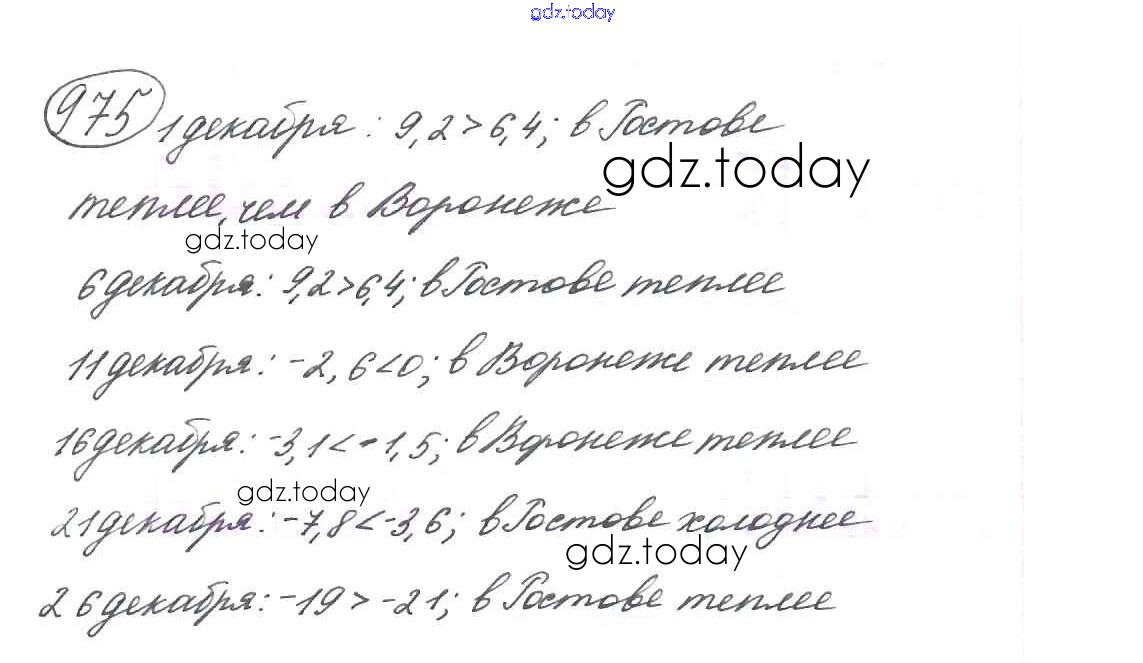 gdz.today
975 1 декабря : 9,2 > 6,4; в Ростове
gdz.today
теплее, чем в Воронеже
gdz.today
6 декабря: 9,2 > 6,4; в Ростове теплее
11 декабря: -2,6 < 0; в Воронеже теплее
16 декабря: -3,1 < -1,5; в Воронеже теплее
gdz.today
21 декабря: -7,8 < -3,6; в Ростове холоднее
gdz.today
26 декабря: -19 > -21; в Ростове теплее